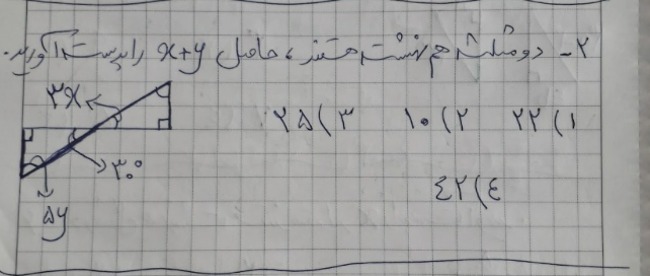 ۲- دو مثلث هم نهشت هستند، حاصل x+y را بدست آورید.
۳x
۱) ۲۲ ۲) ۱۰ ۳) ۲۵
۳۰°
۴) ۴۲
۵y